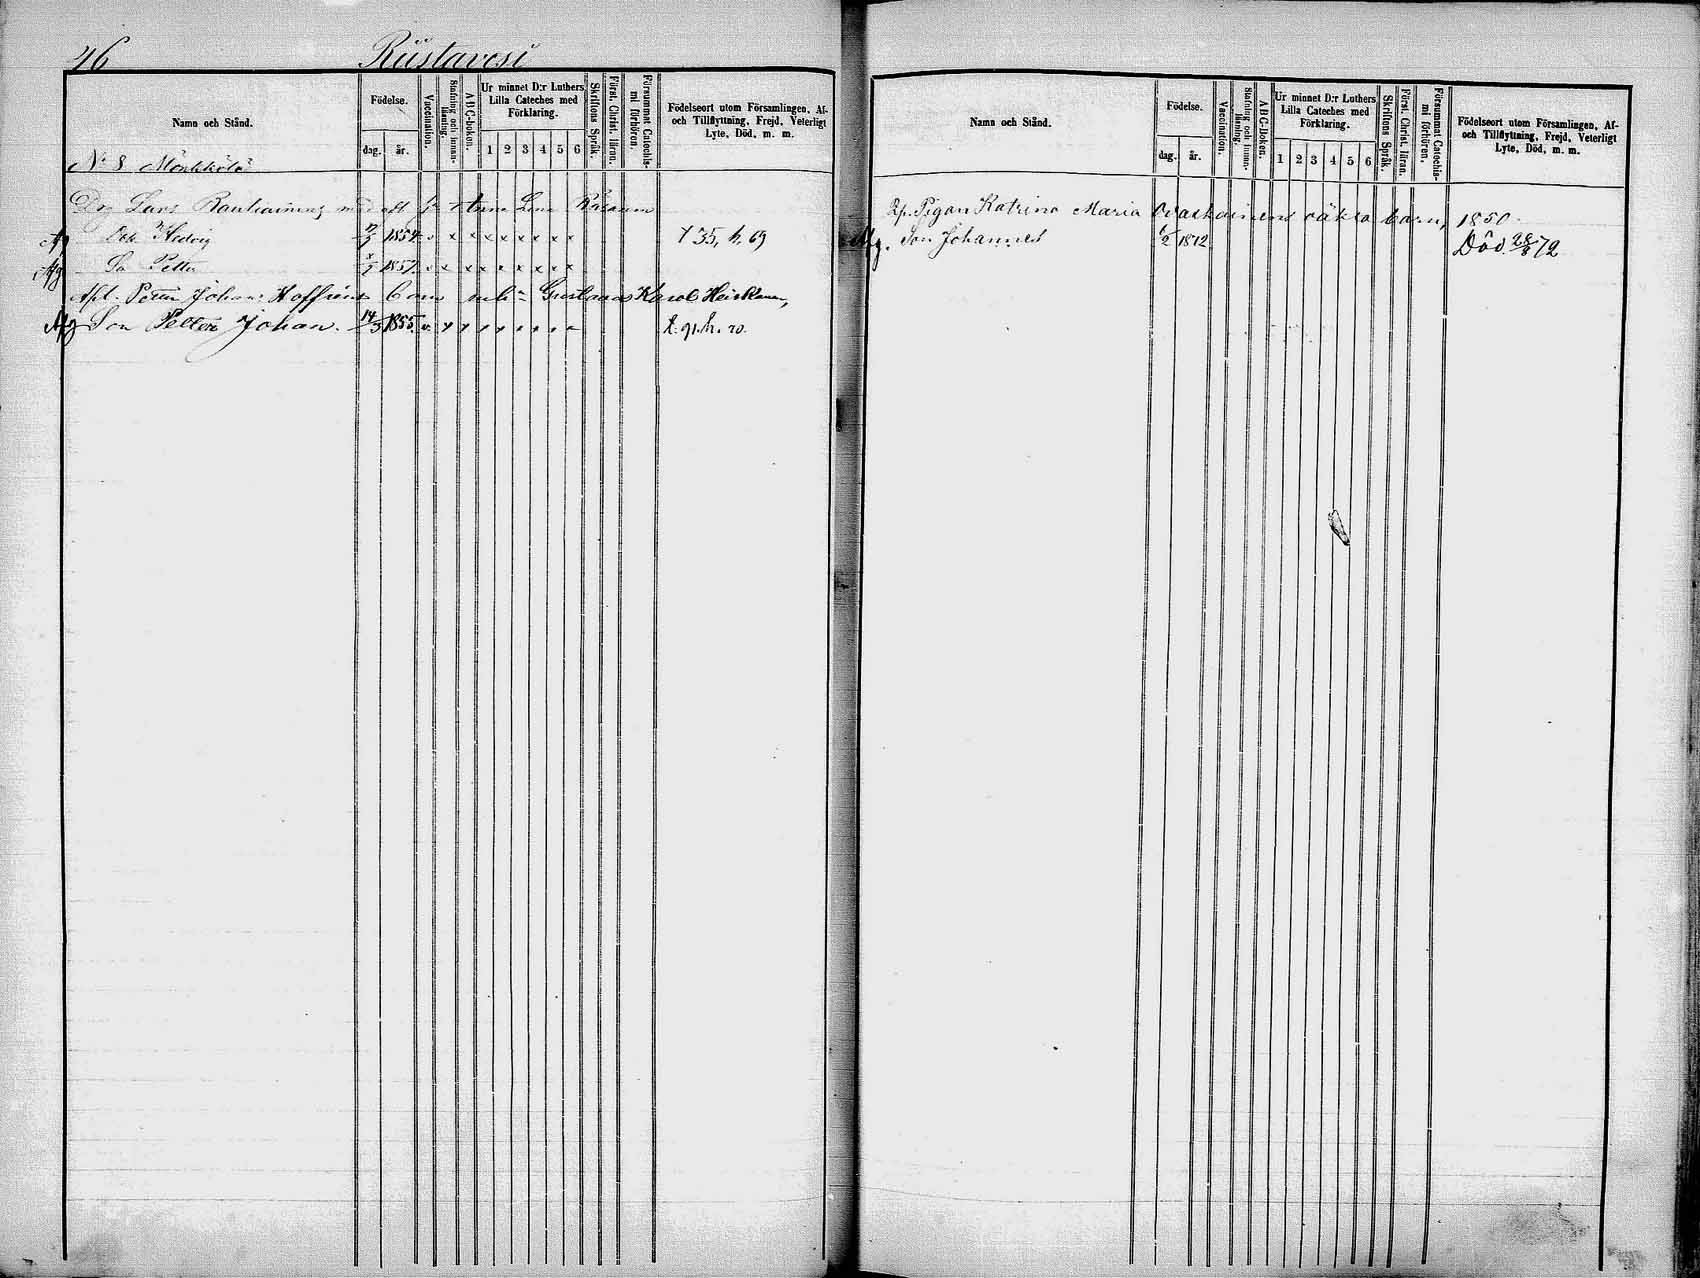 46 Riistavesi
Namn och Stånd.
Födelse.
dag. år.
Vaccination.
Stafning och Innanläsning.
A B C-boken.
Ur minnet D:r Luthers Lilla Cateches med Förklaring.
1 2 3 4 5 6
Skriftens Språk.
Först. Christ. läran.
Försummat Catechismi förhören.
Födelseort utom Församlingen, Af- och Tillflyttning, Frejd, Veterligt Lyte, Död, m. m.
N:o 8 Mönkkölä
Lars Rautiainens med Anna Lena Räsänen
Hedvig 1854 v x x x x x x x x 69
Afg So Petter 1857 v x x x x x x x x
Petter Johan Hoffrens barn med Gustava Karol. Heiskanen,
Afg Son Petter Johan. 14/3 1855. v. x x x x x x x
Namn och Stånd.
Födelse.
dag. år.
Vaccination.
Stafning och Innanläsning.
A B C-boken.
Ur minnet D:r Luthers Lilla Cateches med Förklaring.
1 2 3 4 5 6
Skriftens Språk.
Först. Christ. läran.
Försummat Catechismi förhören.
Födelseort utom Församlingen, Af- och Tillflyttning, Frejd, Veterligt Lyte, Död, m. m.
Pigan Katrina Maria Ovaskainens oäkta barn, 1850
Afg. Son Johannes 6/2 1872 Död 28/8 72